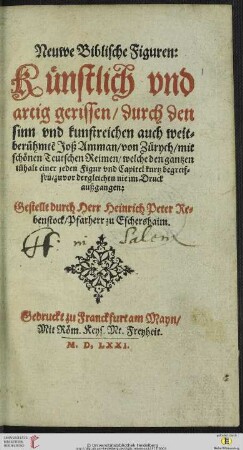 Neuwe Biblische Figuren:
Künstlich vnd
artig gerissen / durch den
sinn vnd kunstreichen auch welt-
berühmtē Joß Amman / von Zürych / mit
schönen Teutschen Reimen / welche den gantzen
inhalt einer jeden Figur vnd Capitel kurtz begreif-
fen / zuvor dergleichen nie im Druck
außgangen:
Gestellt durch Herr Heinrich Peter Re-
benstock / Pfarherr zu Eschershaim.
Salem
Gedruckt zu Franckfurt am Mayn /
Mit Röm. Keys. Mt. Freyheit.
M. D. LXXI.